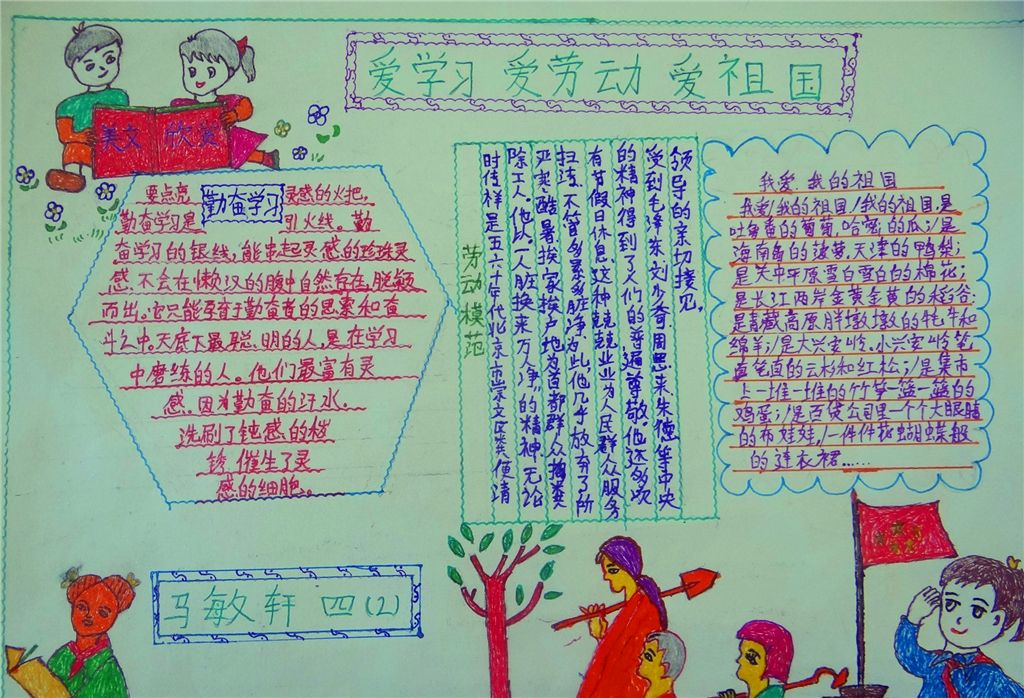 爱学习 爱劳动 爱祖国
美文 欣赏
勤奋学习
要点亮 灵感的火把,
勤奋学习是 引火线。勤
奋学习的银线,能串起灵感的珍珠灵
感,不会在懒汉的腹中自然存在,脱颖
而出。它只能孕育于勤奋者的思索和奋
斗之中。天底下最聪、明的人,是在学习
中磨练的人。他们最富有灵
感。因为勤奋的汗水。
洗刷了钝感的锈
催生了灵
感的细胞。
劳动模范
时传祥是五六十年代北京市崇文区粪便清
除工人。他以“一人脏换来万人净”的精神,无论
严寒酷暑,挨家挨户地为首都群众掏粪
扫污,不管多累多脏净。为此,他几乎放弃了所
有节假日休息,这种兢兢业业为人民群众服务
的精神得到了人们的普遍尊敬。他还多次
受到毛泽东刘少奇周恩来朱德等中央
领导的亲切接见。
我爱 我的祖国
我爱/我的祖国/我的祖国是
吐鲁番的葡萄,哈密的瓜;/是
海南岛的菠萝,天津的鸭梨;
是关中平原雪白雪白的棉花;
是长江两岸金黄金黄的稻谷;
是青藏高原胖墩墩的牦牛和
绵羊;/是大兴安岭。小兴安岭笔
直笔直的云杉和红松;/是集市
上一堆一堆的竹笋一篮一篮的
鸡蛋;/是百货公司里一个个大眼睛
的布娃娃,/一件件花蝴蝶般
的连衣裙……
马敏轩 四(2)